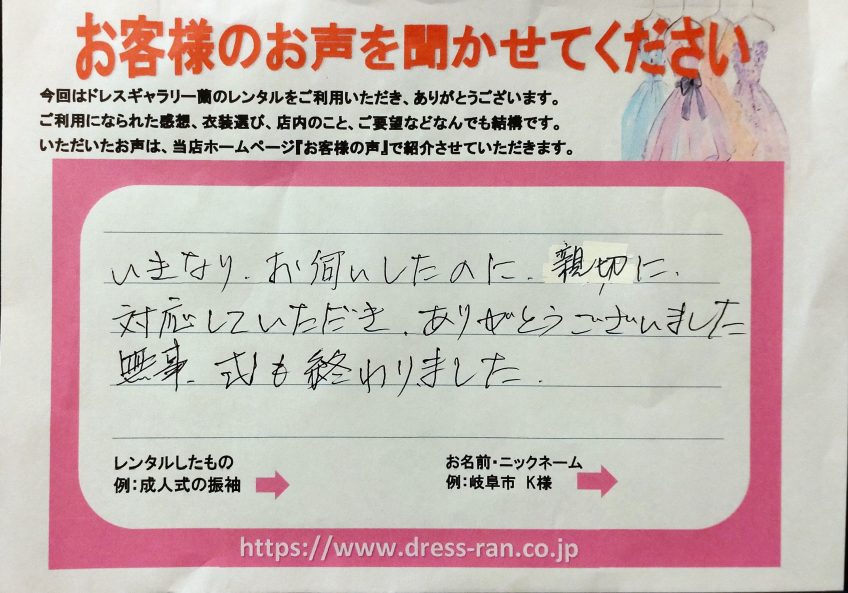 お客様のお声を聞かせてください
今回はドレスギャラリー蘭のレンタルをご利用いただき、ありがとうございます。
ご利用になられた感想、衣装選び、店内のこと、ご要望などなんでも結構です。
いただいたお声は、当店ホームページ『お客様の声』で紹介させていただきます。
いきなり、お伺いしたのに、親切に、
対応していただき、ありがとうございました
無事、式も終わりました。
レンタルしたもの
例:成人式の振袖
お名前・ニックネーム
例:岐阜市 K様
https://www.dress-ran.co.jp